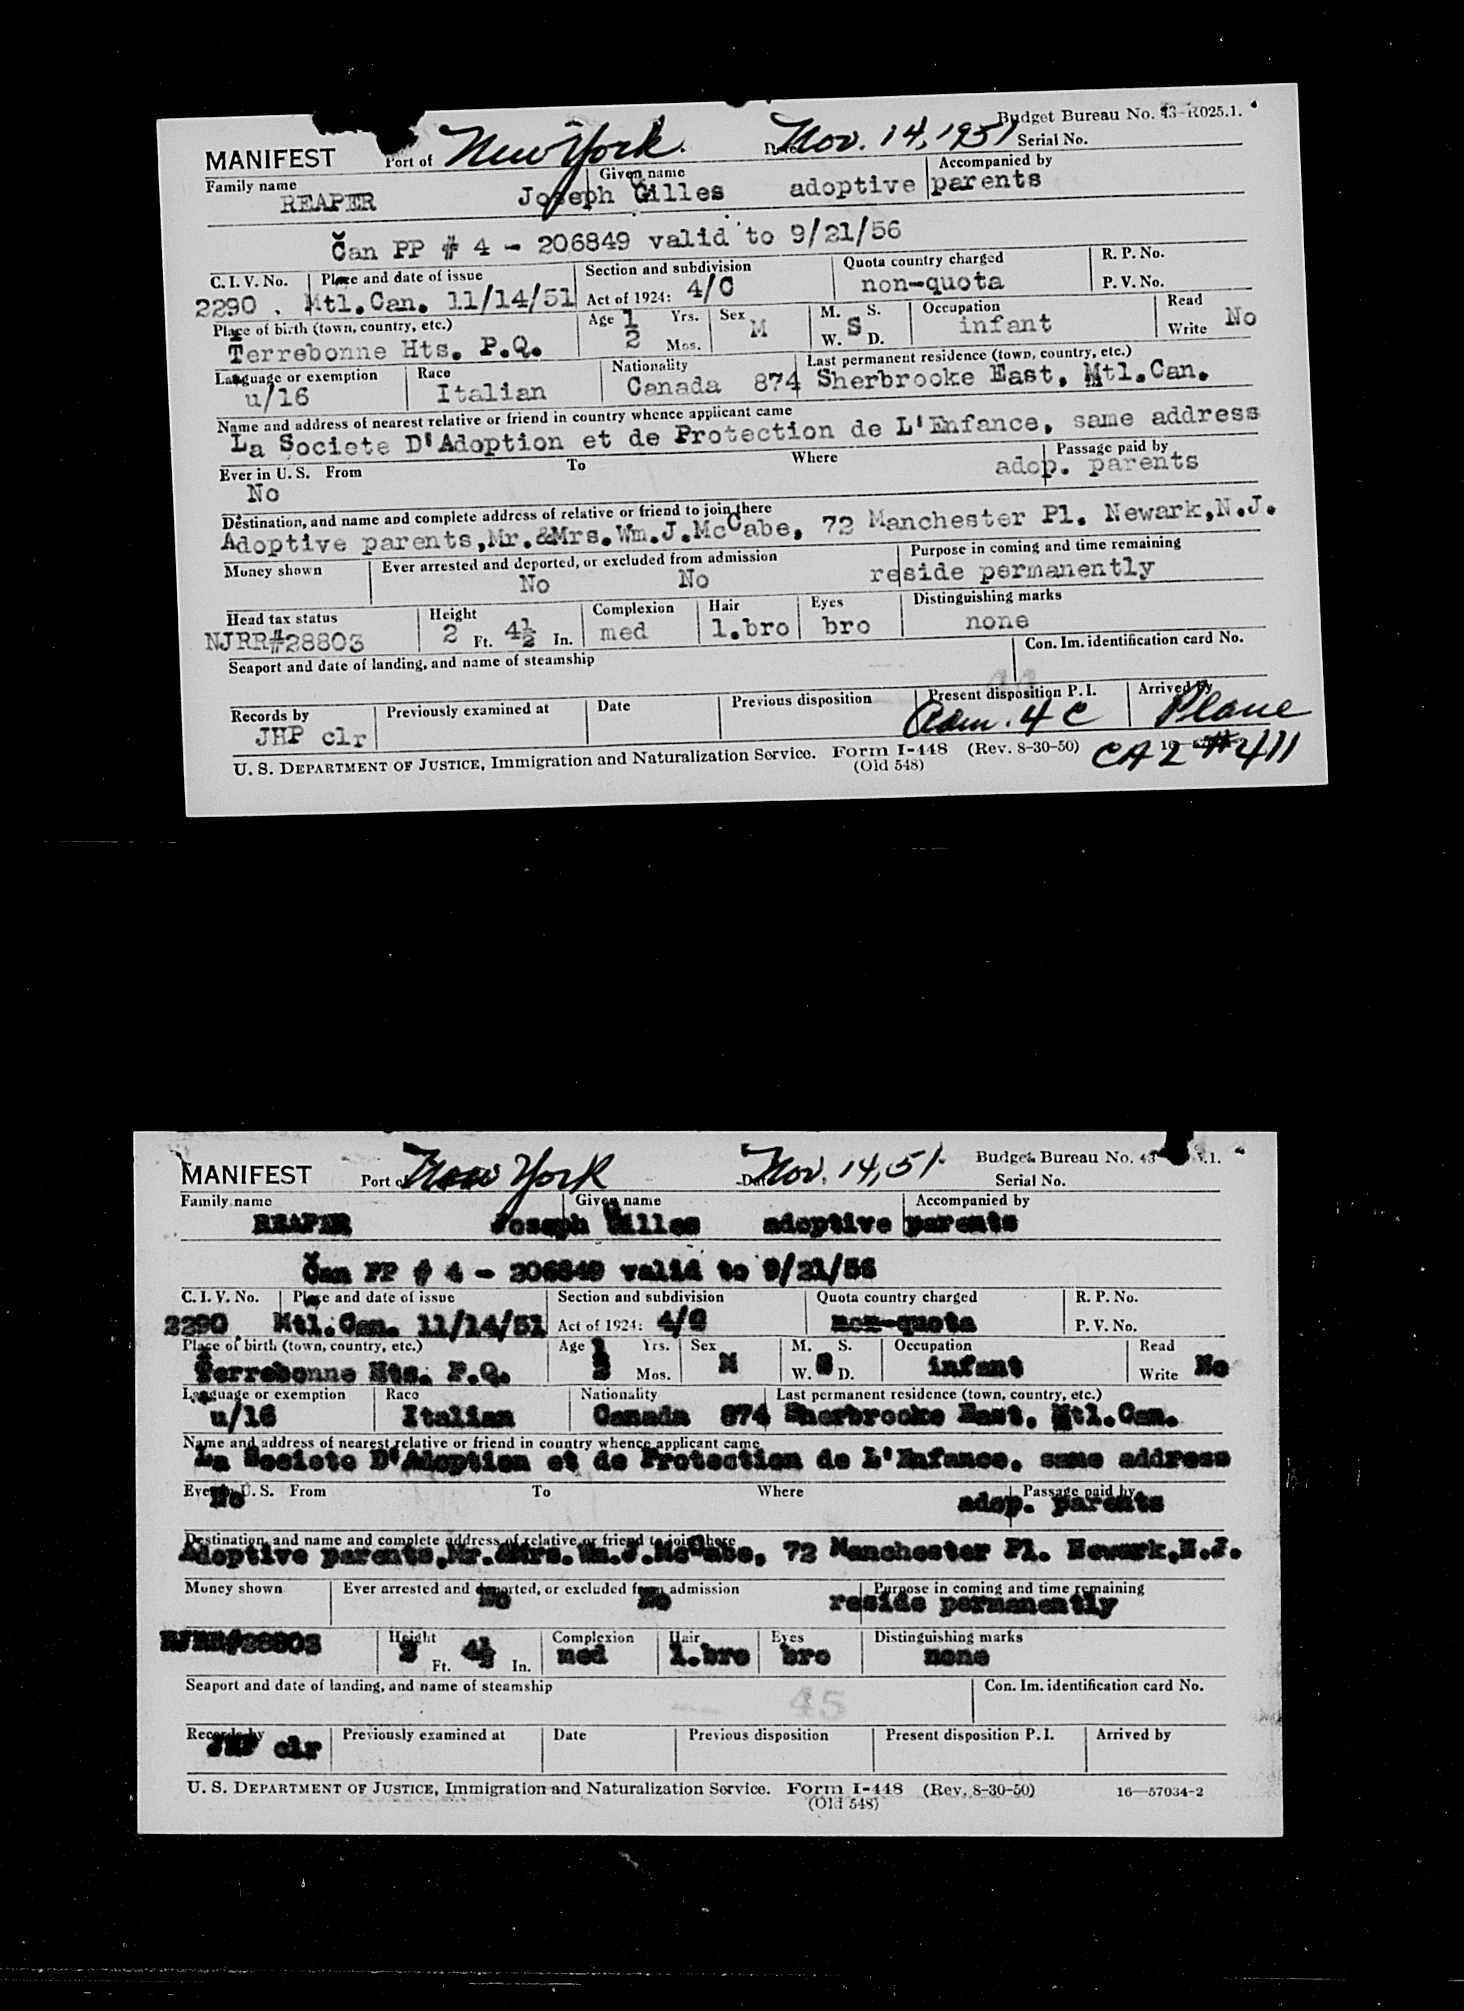 Budget Bureau No. 43-R025.1.
MANIFEST Port of New York. Date Nov. 14, 1951 Serial No.
Family name Given name Accompanied by
REAPER Joseph Gilles adoptive parents
Can PP # 4 - 206849 valid to 9/21/56
C. I. V. No. Place and date of issue Section and subdivision Quota country charged R. P. No.
2290 Mtl.Can. 11/14/51 Act of 1924: 4/C non-quota P. V. No.
Place of birth (town, country, etc.) Age 1/2 Yrs. Mos. Sex M M. S. W. D. S Occupation Read
Terrebonne Hts. P.Q. infant Write No
Language or exemption Race Nationality Last permanent residence (town, country, etc.)
u/16 Italian Canada 874 Sherbrooke East, Mtl.Can.
Name and address of nearest relative or friend in country whence applicant came
La Societe D'Adoption et de Protection de L'Enfance, same address
Ever in U. S. From To Where Passage paid by
No adop. parents
Destination, and name and complete address of relative or friend to join there
Adoptive parents,Mr.&Mrs.Wm.J.McCabe, 72 Manchester Pl. Newark,N.J.
Money shown Ever arrested and deported, or excluded from admission Purpose in coming and time remaining
No No reside permanently
Head tax status Height Complexion Hair Eyes Distinguishing marks
NJRR#28803 2 Ft. 4½ In. med l.bro bro none
Seaport and date of landing, and name of steamship Con. Im. identification card No.
Records by Previously examined at Date Previous disposition Present disposition P. I. Arrived by
JHP clr Adm. 4 C Plane
U. S. DEPARTMENT OF JUSTICE, Immigration and Naturalization Service. Form I-448 (Rev. 8-30-50) CA 2 #411
(Old 548)
MANIFEST Port of New York Date Nov. 14, 51. Budget Bureau No.
Serial No.
Family name Given name Accompanied by
REAPER Joseph Gilles adoptive parents
Can PP # 4 - 206849 valid to 9/21/56
C. I. V. No. Place and date of issue Section and subdivision Quota country charged R. P. No.
2290 Mtl.Can. 11/14/51 Act of 1924: 4/C non-quota P. V. No.
Place of birth (town, country, etc.) Age 1/2 Yrs. Mos. Sex M M. S. W. D. S Occupation Read
Terrebonne Hts. P.Q. infant Write No
Language or exemption Race Nationality Last permanent residence (town, country, etc.)
u/16 Italian Canada 874 Sherbrooke East, Mtl.Can.
Name and address of nearest relative or friend in country whence applicant came
La Societe D'Adoption et de Protection de L'Enfance, same address
Ever in U. S. From To Where Passage paid by
No adop. parents
Destination, and name and complete address of relative or friend to join there
Adoptive parents,Mr.&Mrs.Wm.J.McCabe, 72 Manchester Pl. Newark,N.J.
Money shown Ever arrested and deported, or excluded from admission Purpose in coming and time remaining
No No reside permanently
Height Complexion Hair Eyes Distinguishing marks
NJRR#28803 2 Ft. 4½ In. med l.bro bro none
Seaport and date of landing, and name of steamship 45 Con. Im. identification card No.
Records by Previously examined at Date Previous disposition Present disposition P. I. Arrived by
JHP clr
U. S. DEPARTMENT OF JUSTICE, Immigration and Naturalization Service. Form I-448 (Rev. 8-30-50) 16—57034-2
(Old 548)